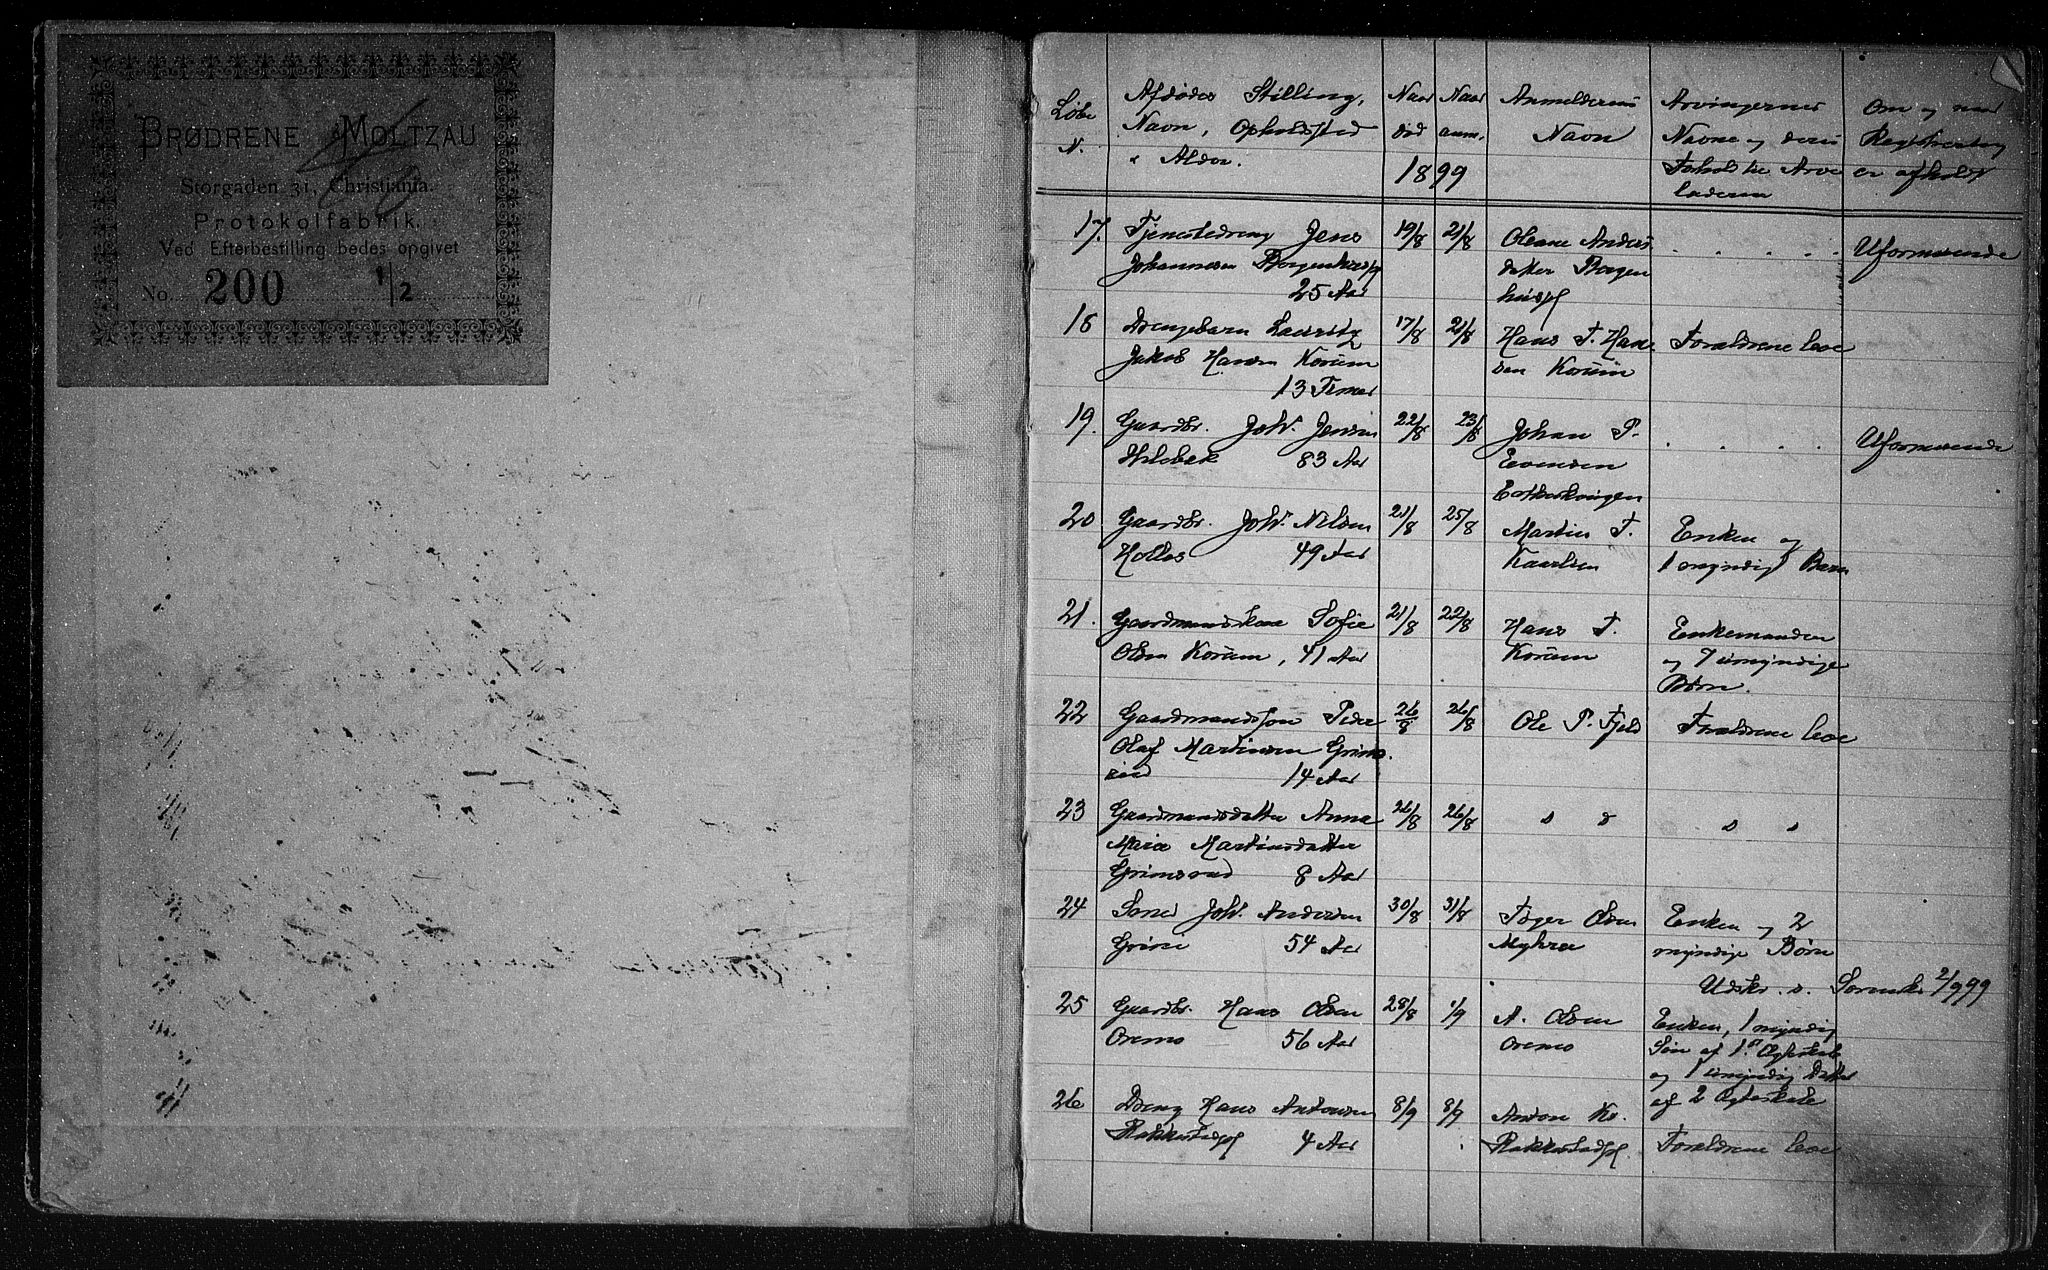 BRØDRENE MOLTZAU
Storgaden 31, Christiania.
Protokolfabrik.
Ved Efterbestilling bedes opgivet
No. 200 1/2
Løbe N.
Afdødes Stilling,
Navn, Opholdssted
Alder.
Naar død
Naar anm.
1899
Anmelderens
Navn
Arvingernes
Navne og deres
Forhold til Arve
laderen
Om og naar
Registrering
er afholdt
17. Tjenestedreng Jens 19/8 21/8 Oleane Anders . . . . Uformuende
Johannesen Borgenhuspl datter Borgen
25 Aar huspl
18 Drengebarn Lauritz 17/8 21/8 Hans T. Han Forældrene leve
Jakob Hansen Korum sen Korum
13 Timer
19. Gaardbr. Joh. Jensen 22/8 23/8 Johan P. . . . . Uformuende
83 Aar Evensen
20 Gaardbr. Joh. Nilsen 21/8 25/8 Martin T. Enken og
Holles 49 Aar Kaarlsen 1 myndigt Barn
21. Gaardmandskone Sofie 21/8 22/8 Hans T. Enkemanden
Olsen Korum, 41 Aar Korum og 7 umyndige
Børn.
22 Gaardmandssøn Peder 26/8 26/8 Ole P. Fjeld Forældrene leve
Olaf Martinsen Grims
rud 14 Aar
23 Gaardmandsdatter Anna 26/8 26/8 " " " "
Marie Martinsdatter
Grimsrud 8 Aar
24 Joh. Andersen 30/8 31/8 Olsen Enken og 2
54 Aar Myhrer myndige Børn
Udskr. s. 2/9 99
25 Gaardbr. Hans Olsen 28/8 1/9 A. Olsen Enken, 1 myndig
Oremo 56 Aar Oremo Søn af 1ste Ægteskab
og 1 umyndig Datter
26 Dreng Hans Antonsen 8/9 8/9 Anton Kr. af 2 Ægteskab
Rakkestadpl 4 Aar Rakkestadpl. Forældrene leve